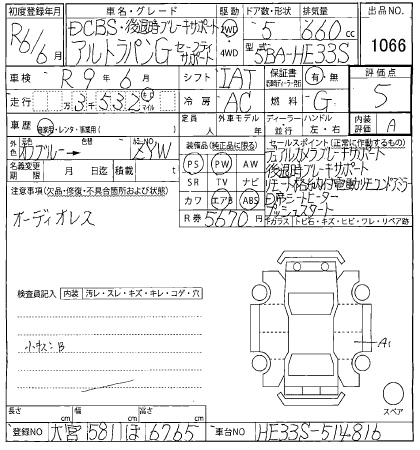 初度登録年月 車名・グレード 駆動 ドア数・形状 排気量 出品NO.
R6/6月 DCBS・後退時ブレーキサポート 2WD 5 660cc 1066
アルトラパンG セーフティサポート 4WD 型式 5BA-HE33S
車検 R9年6月 シフト IAT 保証書 有・無 評価点
走行 万3千532 キロ マイル 冷房 AC 燃料 G 5
車歴 自家用・レンタ・事業用( ) 定員 人 外車モデル 年 ディーラー 並行 ハンドル 左・右 内装評価 A
外色 元色 オフブルー→ 色替 カラーNO. ZYW 装備品(純正品に限る) セールスポイント(正常に作動するもの)
名義変更期限 月 日 積載 t PS PW AW デュアルカメラブレーキサポート
注意事項(欠品・修復・不具合箇所および状態) SR TV ナビ 後退時ブレーキサポート
オーディオレス カワ エアB ABS
R券 5670円 プッシュスタート
ガラス トビ石・キズ・ヒビ・ワレ・リペア跡
検査員記入 内装 汚レ・スレ・キズ・キレ・コゲ・穴
小キズB
A1
スペア
長さ cm 幅 cm 高さ cm
登録NO 大宮 581 ほ 6765 車台NO HE33S-514816